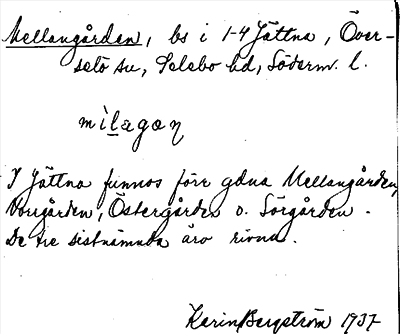 Mellangården, bs i 1-4 Jättna, Över-
selö sn, Selebo hd, Söderm. l.
mìlagoŋ
I Jättna funnos förr gdna Mellangården,
Norrgården, Östergården o. Sörgården.
De tre sistnämnda äro rivna.
Karin Bergström 1937